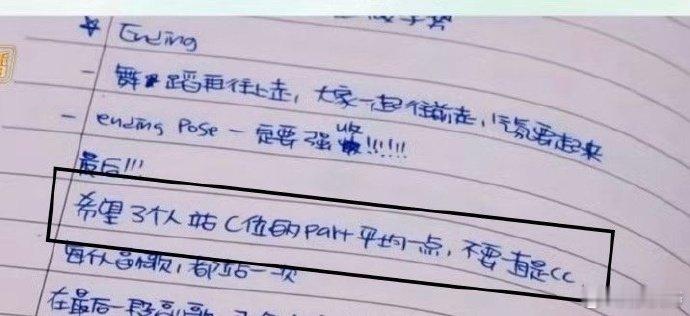 ☆ Ending
- 舞蹈再往上走，大家一起往前走，气氛要起来
- ending pose 一定要强 收!!!!!
最后!!!
希望3个人站C位的part平均一点，不要一直是CC
每个人
，都站一次
在最后一段副歌